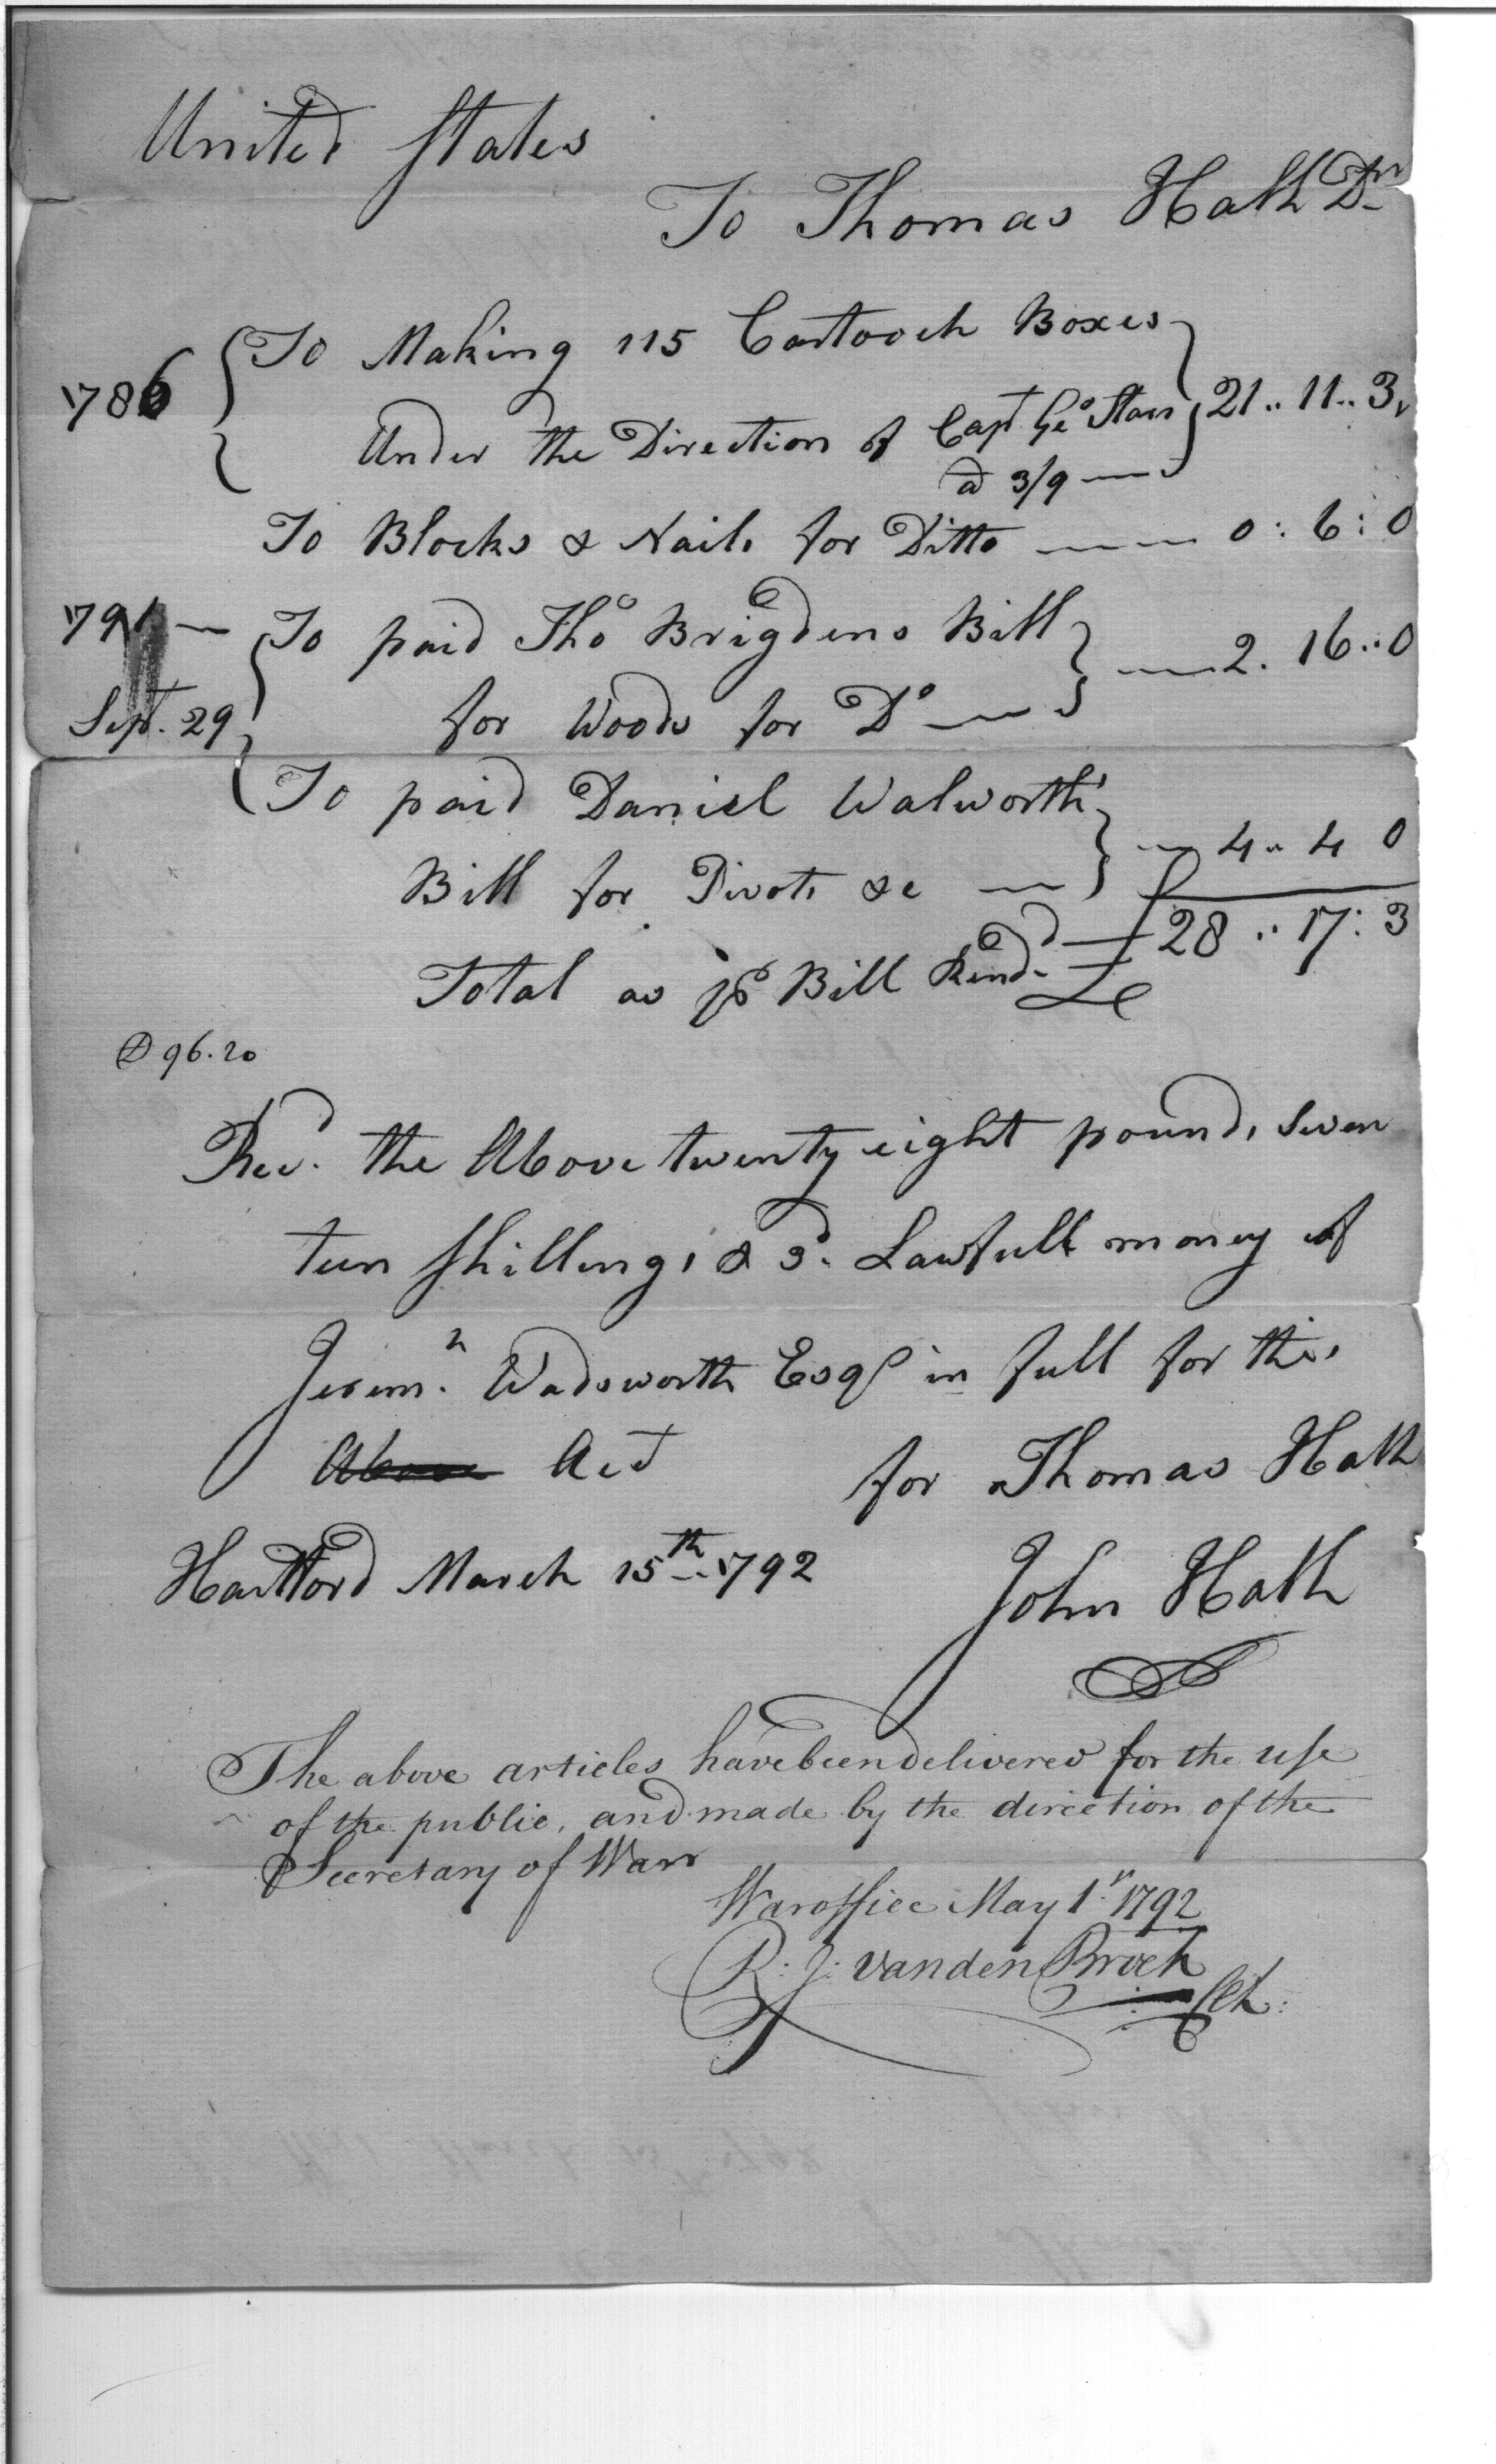 United States
To Thomas Hath Dr
1786 To Making 115 Cartooch Boxes
Under the Direction of Capt Geo Starr 21..11..3
a 3/9
To Blocks & Nails for Ditto 0:6:0
1791 To paid Tho Brigdens Bill
Sept. 29 for Woods for Do 2.16..0
To paid Daniel Walworth
Bill for Pivots &c 4..4 0
Total as pr Bill Rendd £28..17:3
D 96.20
Recd. the Above twenty eight pounds Seven
teen Shillings & 3d. Lawfull money of
Jeremh. Wadsworth Esqr in full for this
Above Act
for Thomas Hath
Hartford March 15th 1792
John Hath
The above articles have been delivered for the use
of the public, and made by the direction of the
Secretary of Warr
War office May 1st 1792
R: J: Vanden Broek
Clk: